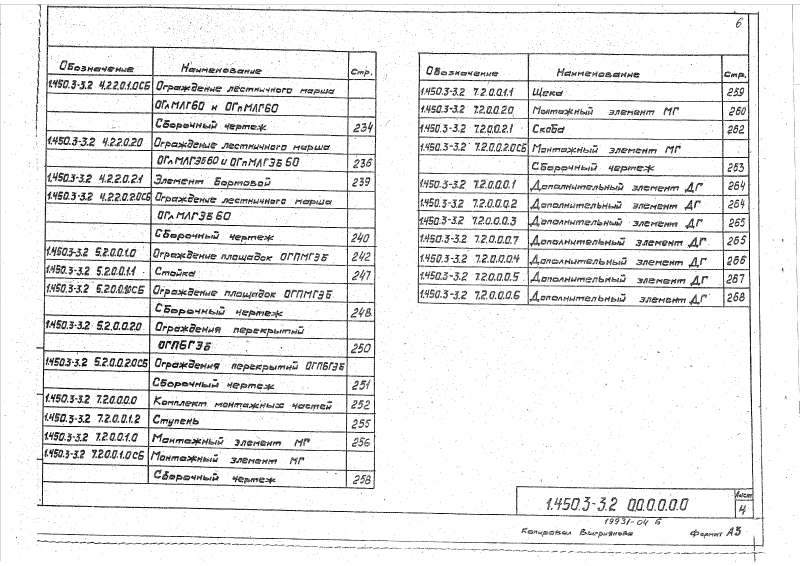 6
Обозначение Наименование Стр.
1.450.3-3.2 4.2.2.0.1.0СБ Ограждение лестничного марша
ОГлМЛГ60 и ОГпМЛГ60
Сборочный чертеж 234
1.450.3-3.2 4.2.2.0.2.0 Ограждение лестничного марша
ОГлМЛГЭБ60 и ОГпМЛГЭБ 60 236
1.450.3-3.2 4.2.2.0.2.1 Элемент бортовой 239
1.450.3-3.2 4.2.2.0.2.0СБ Ограждение лестничного марша
ОГлМЛГЭБ 60
Сборочный чертеж 240
1.450.3-3.2 5.2.0.0.1.0 Ограждение площадок ОГПМГЭБ 242
1.450.3-3.2 5.2.0.0.1.1 Стойка 247
1.450.3-3.2 5.2.0.0.1.0СБ Ограждение площадок ОГПМГЭБ
Сборочный чертеж 248
1.450.3-3.2 5.2.0.0.2.0 Ограждения перекрытий
ОГПБГЭБ 250
1.450.3-3.2 5.2.0.0.2.0СБ Ограждения перекрытий ОГПБГЭБ
Сборочный чертеж 251
1.450.3-3.2 7.2.0.0.0.0 Комплект монтажных частей 252
1.450.3-3.2 7.2.0.0.1.2 Ступень 255
1.450.3-3.2 7.2.0.0.1.0 Монтажный элемент МГ 256
1.450.3-3.2 7.2.0.0.1.0СБ Монтажный элемент МГ
Сборочный чертеж 258
Обозначение Наименование Стр.
1.450.3-3.2 7.2.0.0.1.1 Щека 259
1.450.3-3.2 7.2.0.0.2.0 Монтажный элемент МГ 260
1.450.3-3.2 7.2.0.0.2.1 Скоба 262
1.450.3-3.2 7.2.0.0.2.0СБ Монтажный элемент МГ
Сборочный чертеж 263
1.450.3-3.2 7.2.0.0.0.1 Дополнительный элемент ДГ 264
1.450.3-3.2 7.2.0.0.0.2 Дополнительный элемент ДГ 264
1.450.3-3.2 7.2.0.0.0.3 Дополнительный элемент ДГ 265
1.450.3-3.2 7.2.0.0.0.7 Дополнительный элемент ДГ 265
1.450.3-3.2 7.2.0.0.0.4 Дополнительный элемент ДГ 266
1.450.3-3.2 7.2.0.0.0.5 Дополнительный элемент ДГ 267
1.450.3-3.2 7.2.0.0.0.6 Дополнительный элемент ДГ 268
1.450.3-3.2 0.0.0.0.0.0 Лист 4
19931-04 6
Копировал Формат А3